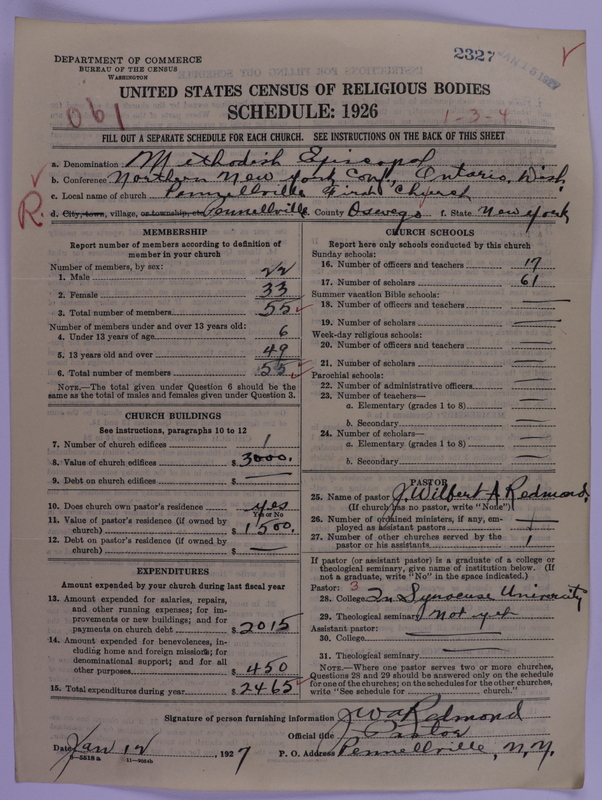 2327
DEPARTMENT OF COMMERCE
BUREAU OF THE CENSUS
WASHINGTON
UNITED STATES CENSUS OF RELIGIOUS BODIES
SCHEDULE: 1926
061
1-3-4
FILL OUT A SEPARATE SCHEDULE FOR EACH CHURCH. SEE INSTRUCTIONS ON THE BACK OF THIS SHEET
a. Denomination Methodist Episcopal
b. Conference Northern New York Conf., Ontario, Dist.
c. Local name of church Pennellville First Church
R.
d. City, town, village, or township, etc. Pennellville County Oswego f. State New York
MEMBERSHIP
Report number of members according to definition of member in your church
Number of members, by sex:
1. Male 22
2. Female 33
3. Total number of members 55
Number of members under and over 13 years old:
4. Under 13 years of age 6
5. 13 years old and over 49
6. Total number of members 55
NOTE.—The total given under Question 6 should be the
same as the total of males and females given under Question 3.
CHURCH BUILDINGS
See instructions, paragraphs 10 to 12
7. Number of church edifices 1
8. Value of church edifices $ 3000.
9. Debt on church edifices $ —
10. Does church own pastor's residence yes
Yes or No
11. Value of pastor's residence (if owned by
church) $ 1500.
12. Debt on pastor's residence (if owned by
church) $ —
EXPENDITURES
Amount expended by your church during last fiscal year
13. Amount expended for salaries, repairs,
and other running expenses; for im-
provements or new buildings; and for
payments on church debt $ 2015
14. Amount expended for benevolences, in-
cluding home and foreign missions; for
denominational support; and for all
other purposes $ 450
15. Total expenditures during year $ 2465
CHURCH SCHOOLS
Report here only schools conducted by this church
Sunday schools:
16. Number of officers and teachers 17
17. Number of scholars 61
Summer vacation Bible schools:
18. Number of officers and teachers —
19. Number of scholars —
Week-day religious schools:
20. Number of officers and teachers —
21. Number of scholars —
Parochial schools:
22. Number of administrative officers —
23. Number of teachers—
a. Elementary (grades 1 to 8) —
b. Secondary —
24. Number of scholars—
a. Elementary (grades 1 to 8) —
b. Secondary —
PASTOR
25. Name of pastor J. Wilbert A Redmond.
(If church has no pastor, write "None")
26. Number of ordained ministers, if any, em-
ployed as assistant pastors
27. Number of other churches served by the
pastor or his assistants 1
If pastor (or assistant pastor) is a graduate of a college or
theological seminary, give name of institution below. (If
not a graduate, write "No" in the space indicated.)
Pastor: 3
28. College In Syracuse University
29. Theological seminary Not yet
Assistant pastor:
30. College —
31. Theological seminary —
NOTE.—Where one pastor serves two or more churches,
Questions 28 and 29 should be answered only on the schedule
for one of the churches; on the schedules for the other churches,
write "See schedule for church."
Signature of person furnishing information J W A Redmond
Official title Pastor
Date Jan 12, 1927
P. O. Address Pennellville, N.Y.
8-5518 a
11-9554b